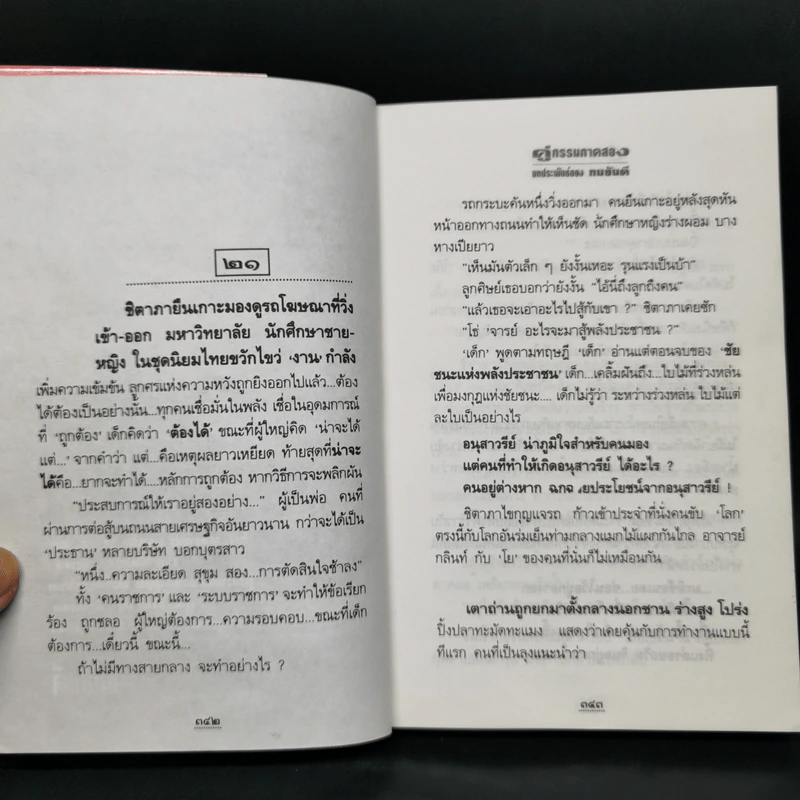 ๒๑
ชิตาภายืนเกาะมองดูรถโฆษณาที่วิ่ง
เข้า-ออก มหาวิทยาลัย นักศึกษาชาย-
หญิง ในชุดนิยมไทยขวักไขว่ ‘งาน’ กำลัง
เพิ่มความเข้มข้น ลูกศรแห่งความหวังถูกยิงออกไปแล้ว...ต้อง
ได้ต้องเป็นอย่างนั้น...ทุกคนเชื่อมั่นในพลัง เชื่อในอุดมการณ์
ที่ ‘ถูกต้อง’ เด็กคิดว่า ‘ต้องได้’ ขณะที่ผู้ใหญ่คิด ‘น่าจะได้
แต่...’ จากคำว่า แต่...คือเหตุผลยาวเหยียด ท้ายสุดที่น่าจะ
ได้คือ...ยากจะทำได้....หลักการถูกต้อง หากวิธีการจะพลิกผัน
“ประสบการณ์ให้เราอยู่สองอย่าง...” ผู้เป็นพ่อ คนที่
ผ่านการต่อสู้บนถนนสายเศรษฐกิจอันยาวนาน กว่าจะได้เป็น
‘ประธาน’ หลายบริษัท บอกบุตรสาว
“หนึ่ง..ความละเอียด สุขุม สอง...การตัดสินใจช้าลง”
ทั้ง ‘คนราชการ’ และ ‘ระบบราชการ’ จะทำให้ข้อเรียก
ร้อง ถูกชลอ ผู้ใหญ่ต้องการ...ความรอบคอบ...ขณะที่เด็ก
ต้องการ...เดี๋ยวนี้ ขณะนี้...
ถ้าไม่มีทางสายกลาง จะทำอย่างไร ?
๓๔๒
คู่กรรมภาคสอง
บทประพันธ์ของ ทมยันตี
รถกระบะคันหนึ่งวิ่งออกมา คนยืนเกาะอยู่หลังสุดหัน
หน้าออกทางถนนทำให้เห็นชัด นักศึกษาหญิงร่างผอม บาง
หางเปียยาว
“เห็นมันตัวเล็ก ๆ ยังงั้นเหอะ รุนแรงเป็นบ้า”
ลูกศิษย์เธอบอกว่ายังงั้น “ไอ้นี่ถึงลูกถึงคน”
“แล้วเธอจะเอาอะไรไปสู้กับเขา ?” ชิตาภาเคยซัก
“โธ่ ’จารย์ อะไรจะมาสู้พลังประชาชน ?”
‘เด็ก’ พูดตามทฤษฎี ‘เด็ก’ อ่านแต่ตอนจบของ ‘ชัย
ชนะแห่งพลังประชาชน’ เด็ก...เคลิ้มฝันถึง...ใบไม้ที่ร่วงหล่น
เพื่อมงกุฎแห่งชัยชนะ.... เด็กไม่รู้ว่า ระหว่างร่วงหล่น ใบไม้แต่
ละใบเป็นอย่างไร
อนุสาวรีย์ น่าภูมิใจสำหรับคนมอง
แต่คนที่ทำให้เกิดอนุสาวรีย์ ได้อะไร ?
คนอยู่ต่างหาก ฉกฉวยประโยชน์จากอนุสาวรีย์ !
ชิตาภาไขกุญแจรถ ก้าวเข้าประจำที่นั่งคนขับ ‘โลก’
ตรงนี้กับโลกอันร่มเย็นท่ามกลางแมกไม้แผกกันไกล อาจารย์
กลินท์ กับ ‘โย’ ของคนที่นั่นก็ไม่เหมือนกัน
เตาถ่านถูกยกมาตั้งกลางนอกชาน ร่างสูง โปร่ง
ปิ้งปลาทะมัดทะแมง แสดงว่าเคยคุ้นกับการทำงานแบบนี้
ทีแรก คนที่เป็นลุงแนะนำว่า
๓๔๓